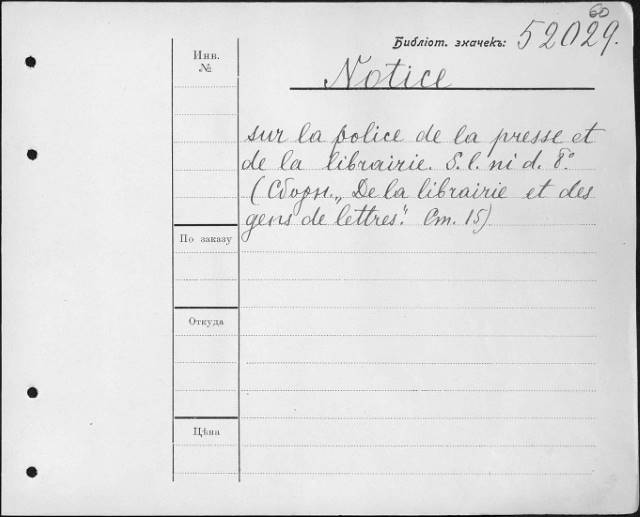 60
Библіот. значекъ: 52029.
Инв.
№
Notice
sur la police de la presse et
de la librairie. S. l. ni d. 8°
(Сборн. „De la librairie et des
gens de lettres“. Ст. 15)
По заказу
Откуда
Цѣна